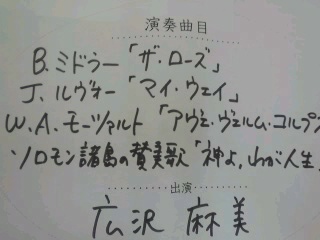 演奏曲目
B.ミドラー「ザ・ローズ」
J.ルヴォー「マイ・ウェイ」
W.A.モーツァルト「アヴェ・ヴェルム・コルプス
ソロモン諸島の賛美歌「神よ、わが人生
出演
広沢 麻美